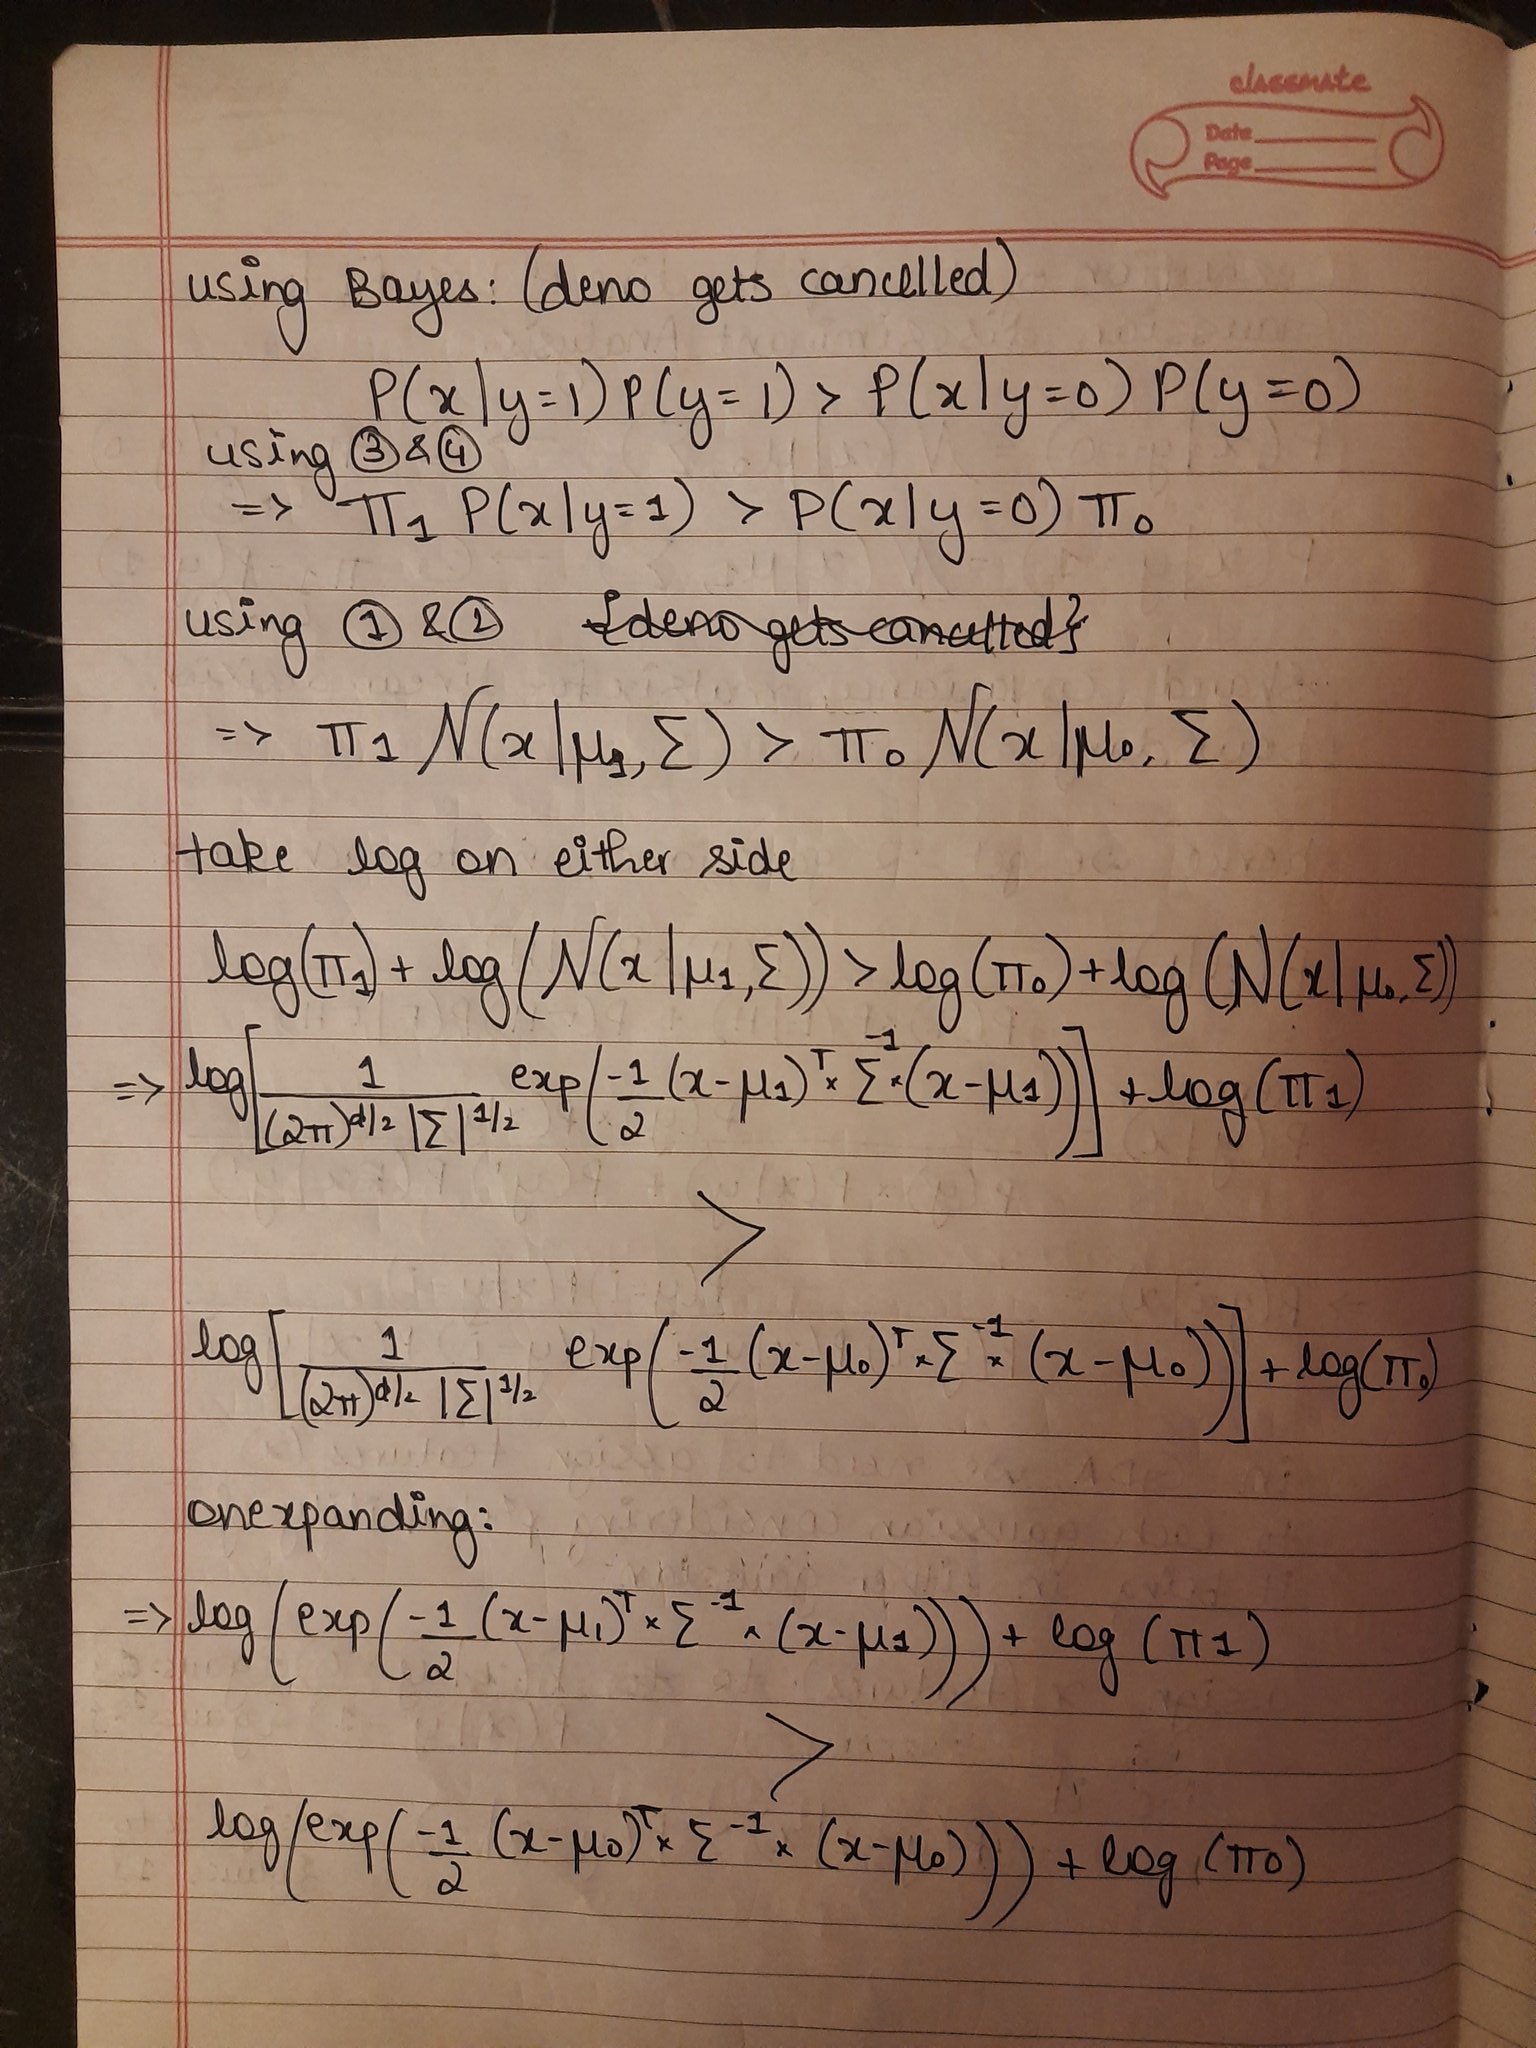 classmate
Date
Page
using Bayes: (deno gets cancelled)
P(x|y=1) P(y=1) > P(x|y=0) P(y=0)
using ③ & ④
=> π₁ P(x|y=1) > P(x|y=0) π₀
using ① & ② {deno gets cancelled}
=> π₁ N(x|μ₁, Σ) > π₀ N(x|μ₀, Σ)
take log on either side
log(π₁) + log(N(x|μ₁, Σ)) > log(π₀) + log(N(x|μ₀, Σ))
=> log[1/((2π)^(d/2) |Σ|^(1/2)) exp(-1/2 (x-μ₁)ᵀ × Σ⁻¹ × (x-μ₁))] + log(π₁)
>
log[1/((2π)^(d/2) |Σ|^(1/2)) exp(-1/2 (x-μ₀)ᵀ × Σ⁻¹ × (x-μ₀))] + log(π₀)
on expanding:
=> log(exp(-1/2 (x-μ₁)ᵀ × Σ⁻¹ × (x-μ₁))) + log(π1)
>
log(exp(-1/2 (x-μ₀)ᵀ × Σ⁻¹ × (x-μ₀))) + log(π0)